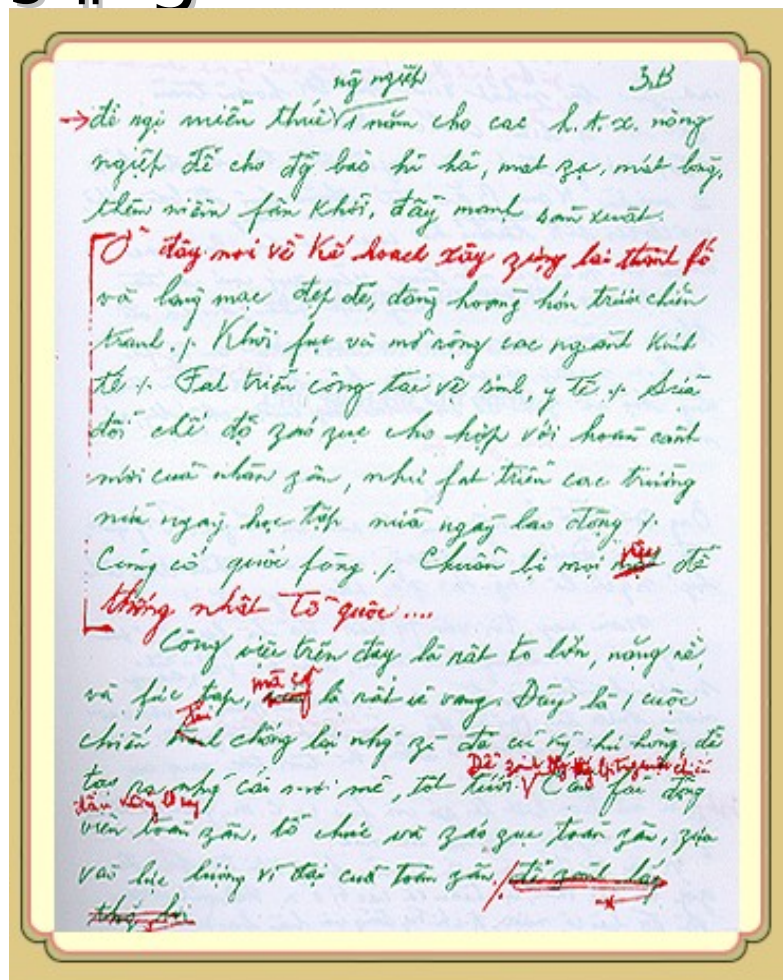 ng̃ ngiệp 3B
→ đề ngị miễn thúê 1 năm cho các h.t.x. nông
ngiệp để cho đg̃ bào hỉ hả, mát zạ, mát lòng,
thêm niềm fấn khởi, đẩy mạnh sản xuất.
Ở đây nói về Kế hoạch xây zựng lại thành fố
và làng mạc đẹp đẽ, đàng hoàng hơn trước chiến
tranh. /. Khôi fục và mở rộng các ngành kinh
tế /. Fát triển công tác vệ sinh, y tế /. Sửa
đổi chế độ záo zục cho hợp với hoàn cảnh
mới của nhân zân, như fát triển các trường
nửa ngày học tập nửa ngày lao động /.
Củng cố quốc fòng /. Chuẩn bị mọi việc để
thống nhất Tổ quốc....
Công việc trên đây là rất to lớn, nặng nề,
và fức tạp, mà cũ là rất vẻ vang. Đây là 1 cuộc
chiến đấu chống lại nhg̃ zì đã cũ kỹ hư hỏng, để
tạo ra nhg̃ cái mới mẻ, tốt tươi. Cần fải động
viên toàn zân, tổ chức và záo zục toàn zân, zựa
vào lực lượng vĩ đại của toàn zân, để zành lấy
thg̃ lợi